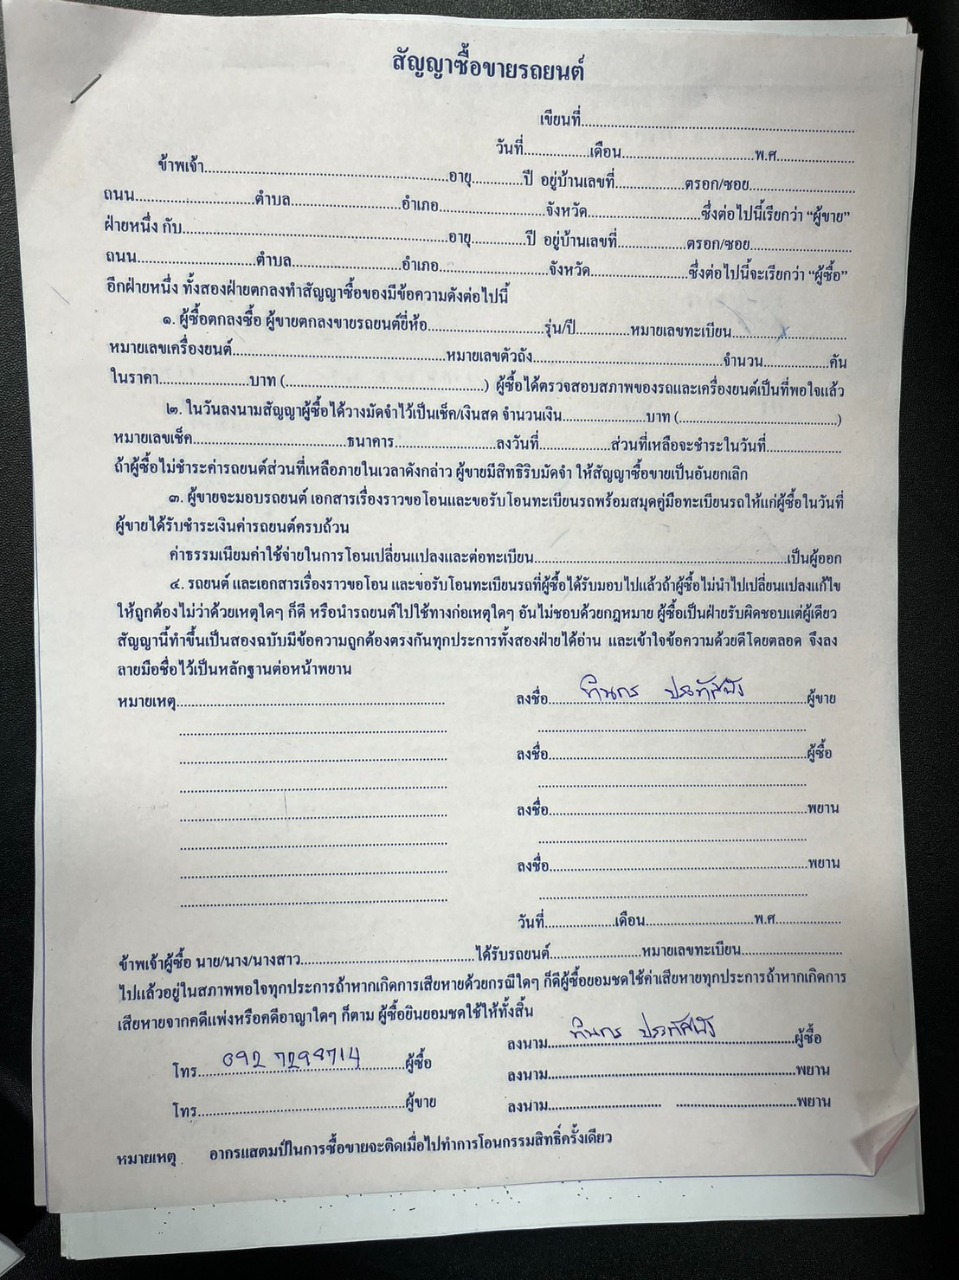 สัญญาซื้อขายรถยนต์
เขียนที่
วันที่ เดือน พ.ศ.
ข้าพเจ้า อายุ ปี อยู่บ้านเลขที่ ตรอก/ซอย
ถนน ตำบล อำเภอ จังหวัด ซึ่งต่อไปนี้เรียกว่า “ผู้ขาย”
ฝ่ายหนึ่ง กับ อายุ ปี อยู่บ้านเลขที่ ตรอก/ซอย
ถนน ตำบล อำเภอ จังหวัด ซึ่งต่อไปนี้จะเรียกว่า “ผู้ซื้อ”
อีกฝ่ายหนึ่ง ทั้งสองฝ่ายตกลงทำสัญญาซื้อของมีข้อความดังต่อไปนี้
๑. ผู้ซื้อตกลงซื้อ ผู้ขายตกลงขายรถยนต์ยี่ห้อ รุ่น/ปี หมายเลขทะเบียน
หมายเลขเครื่องยนต์ หมายเลขตัวถัง จำนวน คัน
ในราคา บาท ( ) ผู้ซื้อได้ตรวจสอบสภาพของรถและเครื่องยนต์เป็นที่พอใจแล้ว
๒. ในวันลงนามสัญญาผู้ซื้อได้วางมัดจำไว้เป็นเช็ค/เงินสด จำนวนเงิน บาท ( )
หมายเลขเช็ค ธนาคาร ลงวันที่ ส่วนที่เหลือจะชำระในวันที่
ถ้าผู้ซื้อไม่ชำระค่ารถยนต์ส่วนที่เหลือภายในเวลาดังกล่าว ผู้ขายมีสิทธิริบมัดจำ ให้สัญญาซื้อขายเป็นอันยกเลิก
๓. ผู้ขายจะมอบรถยนต์ เอกสารเรื่องราวขอโอนและขอรับโอนทะเบียนรถพร้อมสมุดคู่มือทะเบียนรถให้แก่ผู้ซื้อในวันที่
ผู้ขายได้รับชำระเงินค่ารถยนต์ครบถ้วน
ค่าธรรมเนียมค่าใช้จ่ายในการโอนเปลี่ยนแปลงและต่อทะเบียน เป็นผู้ออก
๔. รถยนต์ และเอกสารเรื่องราวขอโอน และขอรับโอนทะเบียนรถที่ผู้ซื้อได้รับมอบไปแล้วถ้าผู้ซื้อไม่นำไปเปลี่ยนแปลงแก้ไข
ให้ถูกต้องไม่ว่าด้วยเหตุใดๆ ก็ดี หรือนำรถยนต์ไปใช้ทางก่อเหตุใดๆ อันไม่ชอบด้วยกฎหมาย ผู้ซื้อเป็นฝ่ายรับผิดชอบแต่ผู้เดียว
สัญญานี้ทำขึ้นเป็นสองฉบับมีข้อความถูกต้องตรงกันทุกประการทั้งสองฝ่ายได้อ่าน และเข้าใจข้อความด้วยดีโดยตลอด จึงลง
ลายมือชื่อไว้เป็นหลักฐานต่อหน้าพยาน
หมายเหตุ ลงชื่อ ทินกร ผู้ขาย
ลงชื่อ ผู้ซื้อ
ลงชื่อ พยาน
ลงชื่อ พยาน
วันที่ เดือน พ.ศ.
ข้าพเจ้าผู้ซื้อ นาย/นาง/นางสาว ได้รับรถยนต์ หมายเลขทะเบียน
ไปแล้วอยู่ในสภาพพอใจทุกประการถ้าหากเกิดการเสียหายด้วยกรณีใดๆ ก็ดีผู้ซื้อยอมชดใช้ค่าเสียหายทุกประการถ้าหากเกิดการ
เสียหายจากคดีแพ่งหรือคดีอาญาใดๆ ก็ตาม ผู้ซื้อยินยอมชดใช้ให้ทั้งสิ้น
ลงนาม ทินกร ผู้ซื้อ
โทร 092 7298714 ผู้ซื้อ ลงนาม พยาน
โทร ผู้ขาย ลงนาม พยาน
หมายเหตุ อากรแสตมป์ในการซื้อขายจะติดเมื่อไปทำการโอนกรรมสิทธิ์ครั้งเดียว